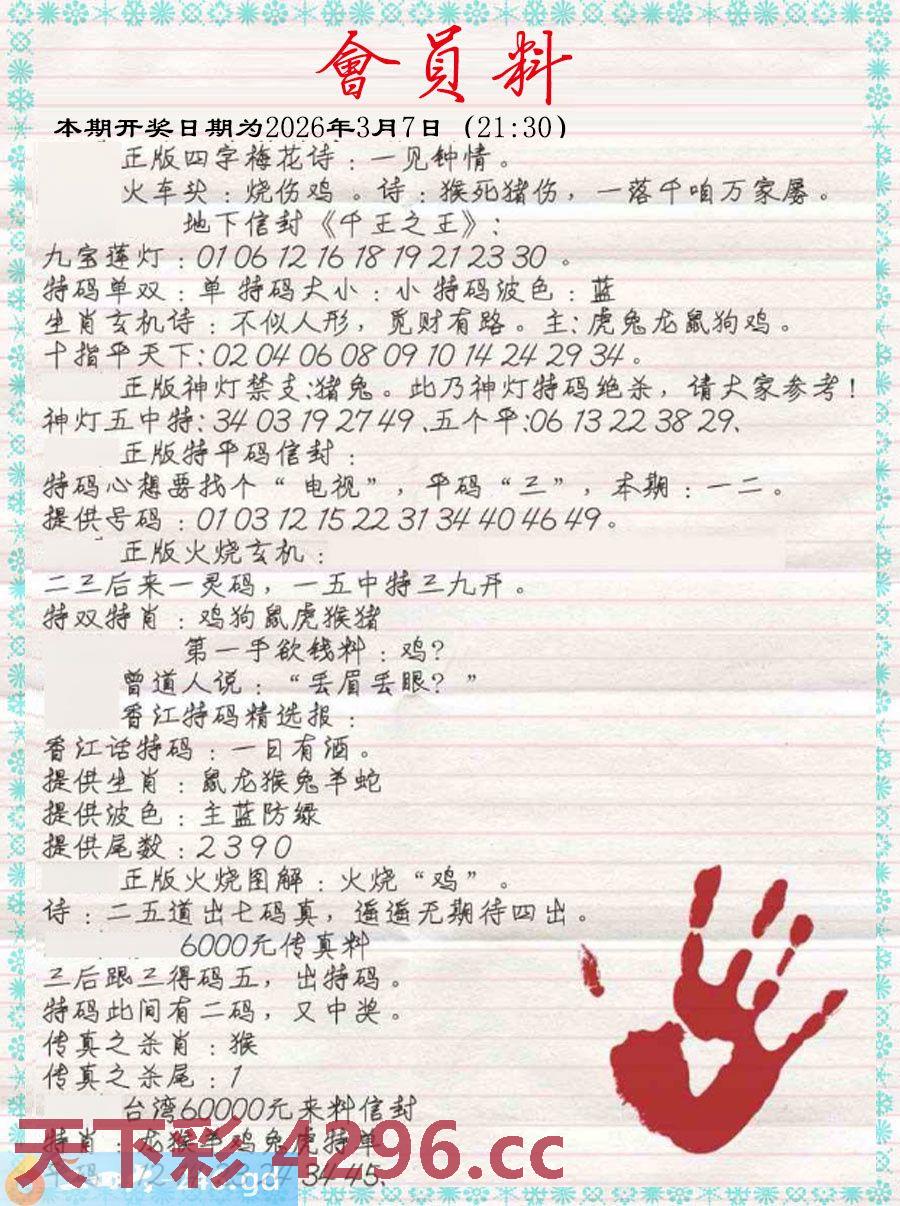 會員料
本期开奖日期为2026年3月7日（21:30）
正版四字梅花诗：一见钟情。
火车头：烧伤鸡。诗：猴死猪伤，一落千咱万家屡。
地下信封《千王之王》：
九宝莲灯：01 06 12 16 18 19 21 23 30。
特码单双：单 特码大小：小 特码波色：蓝
生肖玄机诗：不似人形，觅财有路。主：虎兔龙鼠狗鸡。
十指平天下：02 04 06 08 09 10 14 24 29 34。
正版神灯禁支：猪兔。此乃神灯特码绝杀，请大家参考！
神灯五中特：34 03 19 27 49、五个平：06 13 22 38 29、
正版特平码信封：
特码心想要找个“电视”，平码“三”，本期：一二。
提供号码：01 03 12 15 22 31 34 40 46 49。
正版火烧玄机：
二三后来一灵码，一五中特三九开。
特双特肖：鸡狗鼠虎猴猪
第一手欲钱料：鸡？
曾道人说：“丢眉丢眼？”
香江特码精选报：
香江话特码：一日有酒。
提供生肖：鼠龙猴兔羊蛇
提供波色：主蓝防绿
提供尾数：2 3 9 0
正版火烧图解：火烧“鸡”。
诗：二五道出七码真，遥遥无期待四出。
6000元传真料
三后跟三得码五，出特码。
特码此间有二码，又中奖。
传真之杀肖：猴
传真之杀尾：1
台湾60000元来料信封
特肖：龙猴羊鸡兔虎特单
34 45、
天下彩.4296.cc